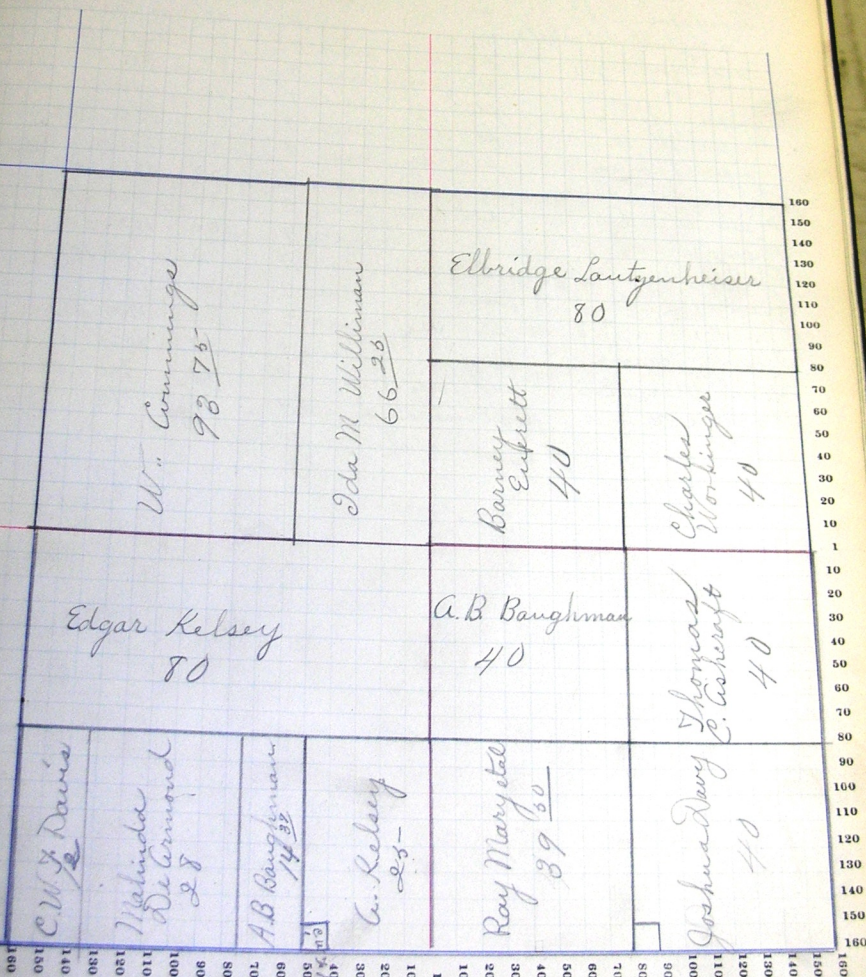 Elbridge Lautzenheiser
80
Wm Cummings
93 75
Ida M Williman
66 25
Barney
Everett
40
Charles
Workinger
40
Edgar Kelsey
80
A.B Baughman
40
Thomas
C. Ashcraft
40
C.W.F. Davis
Malinda
De Armond
28
A.B Baughman
14
A. Kelsey
25
Ray
39 50
Joshua Davy
40
160
150
140
130
120
110
100
90
80
70
60
50
40
30
20
10
1
10
20
30
40
50
60
70
80
90
100
110
120
130
140
150
160
160 150 140 130 120 110 100 90 80 70 60 50 40 30 20 10 1 10 20 30 40 50 60 70 80 90 100 110 120 130 140 150 160